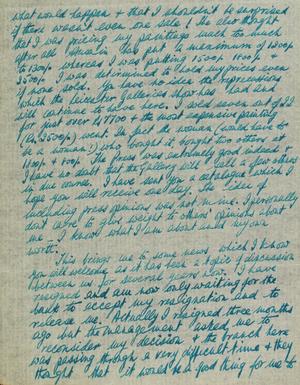 what would happen & that I shouldn't be surprised
if there wasn't even one sale! He also thought
that I was pricing my paintings much too much
after all Husain had put a maximum of 1200p
to 1300p whereas I was putting 1500p 1800p &
2500p. I was determined to hold my prices even
if none sold. You have no idea the repercussions
which the Leicester Galleries show has had and
will continue to have here. I sold seven out of 22
for just over 4700 & the most expensive painting
(Rs 2500p) went. In fact the woman (would have to
be a woman!) who bought it bought two others at
1100p & 800p. The press was extremely good indeed &
I have no doubt that the gallery will sell a few others
in due course. I have sent you a catalogue which I
hope you will receive one day. The idea of
including press opinions was not mine. I personally
don't care to give weight to others' opinions about
me — I know what I am about and my own
worth.
This brings me to some news which I know
you will welcome as it has been a topic of discussion
between us for several years now. I have
resigned and am now only waiting for the
bank to accept my resignation and to
release me. Actually I resigned three months
ago but the management asked me to
reconsider my decision & the branch here
was passing through a very difficult time & they
thought that it would be a good thing for me to